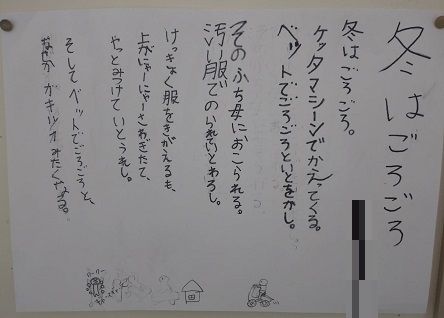 冬はごろごろ
冬はごろごろ。
ケッタマシーンでかえってくる。
ベットでごろごろといとをかし。
そのふち母におこられる。
汚い服でのられいとわろし。
けっきょく服をきがえるも、
上がにゃーにゃーさわぎたて、
やっとみつけていとうれし。
そしてベットでごろごろと、
みたくなる。